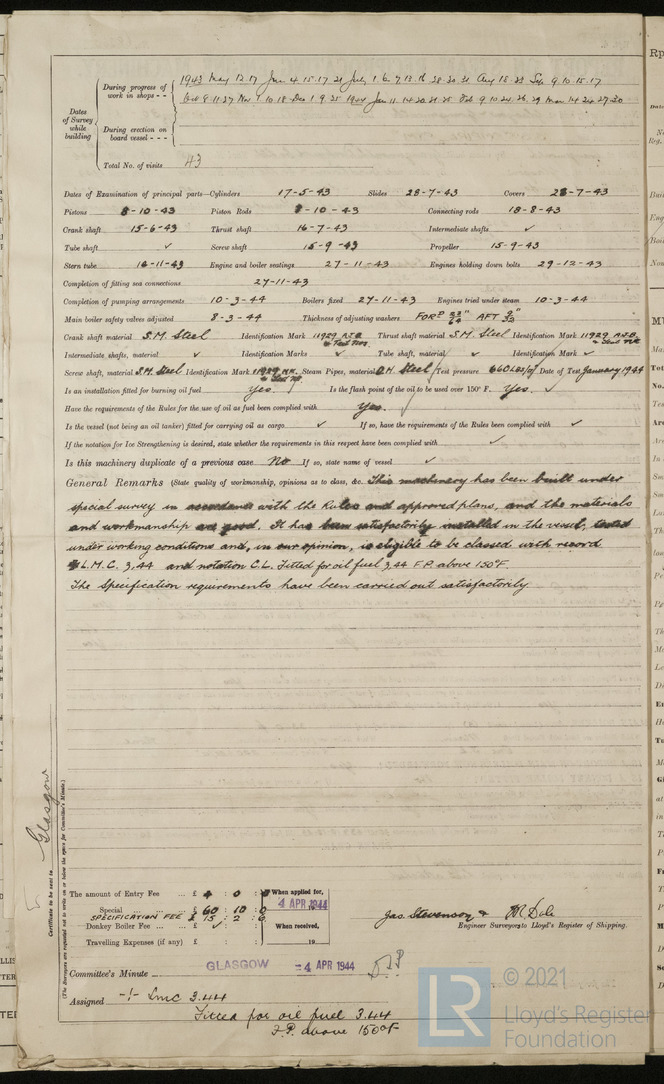 During progress of work in shops - - 1943 May 12.17 Jun 4.15.17.21 July 1.6.7.13.16.28.30.31 Aug 18.23 Sep 9.10.15.17
Oct 8.11.27 Nov 1.10.18 Dec 1.9.25 1944 Jan 11.14.20.21.25 Feb 9.10.24.26.29 Mar 14.24.27.30
Dates of Survey while building
During erection on board vessel - - -
Total No. of visits 43
Dates of Examination of principal parts—Cylinders 17-5-43 Slides 28-7-43 Covers 28-7-43
Pistons 8-10-43 Piston Rods 8-10-43 Connecting rods 18-8-43
Crank shaft 15-6-43 Thrust shaft 16-7-43 Intermediate shafts ✓
Tube shaft ✓ Screw shaft 15-9-43 Propeller 15-9-43
Stern tube 16-11-43 Engine and boiler seatings 27-11-43 Engines holding down bolts 29-12-43
Completion of fitting sea connections 27-11-43
Completion of pumping arrangements 10-3-44 Boilers fixed 27-11-43 Engines tried under steam 10-3-44
Main boiler safety valves adjusted 8-3-44 Thickness of adjusting washers FORD 23/64" AFT
Crank shaft material S.M. Steel Identification Mark 11929 A.J.B. Thrust shaft material S.M. Steel Identification Mark 11929 A.J.B.
Intermediate shafts, material ✓ Identification Marks ✓ Tube shaft, material ✓ Identification Mark ✓
Screw shaft, material S.M. Steel Identification Mark 11929 Steam Pipes, material S.M. Steel Test pressure 660 LBS/□" Date of Test January 1944
Is an installation fitted for burning oil fuel yes. Is the flash point of the oil to be used over 150° F. yes. ✓
Have the requirements of the Rules for the use of oil as fuel been complied with yes.
Is the vessel (not being an oil tanker) fitted for carrying oil as cargo ✓ If so, have the requirements of the Rules been complied with ✓
If the notation for Ice Strengthening is desired, state whether the requirements in this respect have been complied with ✓
Is this machinery duplicate of a previous case No If so, state name of vessel ✓
General Remarks (State quality of workmanship, opinions as to class, &c. This machinery has been built under
special survey in accordance with the Rules and approved plans, and the materials
and workmanship are good. It has been satisfactorily installed in the vessel, tested
under working conditions and, in our opinion, is eligible to be classed with record
L.M.C. 3,44 and notation C.L. Fitted for oil fuel 3,44 F.P. above 150°F.
The Specification requirements have been carried out satisfactorily.
Glasgow
Certificate to be sent to
(The Surveyors are requested not to write on or below the space for Committee's Minute.)
The amount of Entry Fee ... £ 4 : 0 : 0 When applied for,
Special ... ... £ 60 : 10 : 0 4 APR 1944
SPECIFICATION FEE £ 15 : 2 : 6
Donkey Boiler Fee ... £ ✓ : : When received,
Travelling Expenses (if any) £ : : 19
Jas Stevenson &
Engineer Surveyors to Lloyd's Register of Shipping.
Committee's Minute GLASGOW -4 APR 1944
Assigned + LMC 3.44
Fitted for oil fuel 3.44
F.P. above 150°F
LR © 2021
Lloyd's Register
Foundation